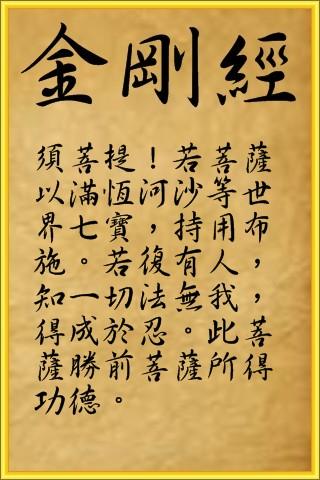 金剛經
須菩提！若菩薩
以滿恆河沙等世
界七寶，持用布
施。若復有人，
知一切法無我，
得成於忍。此菩
薩勝前菩薩所得
功德。